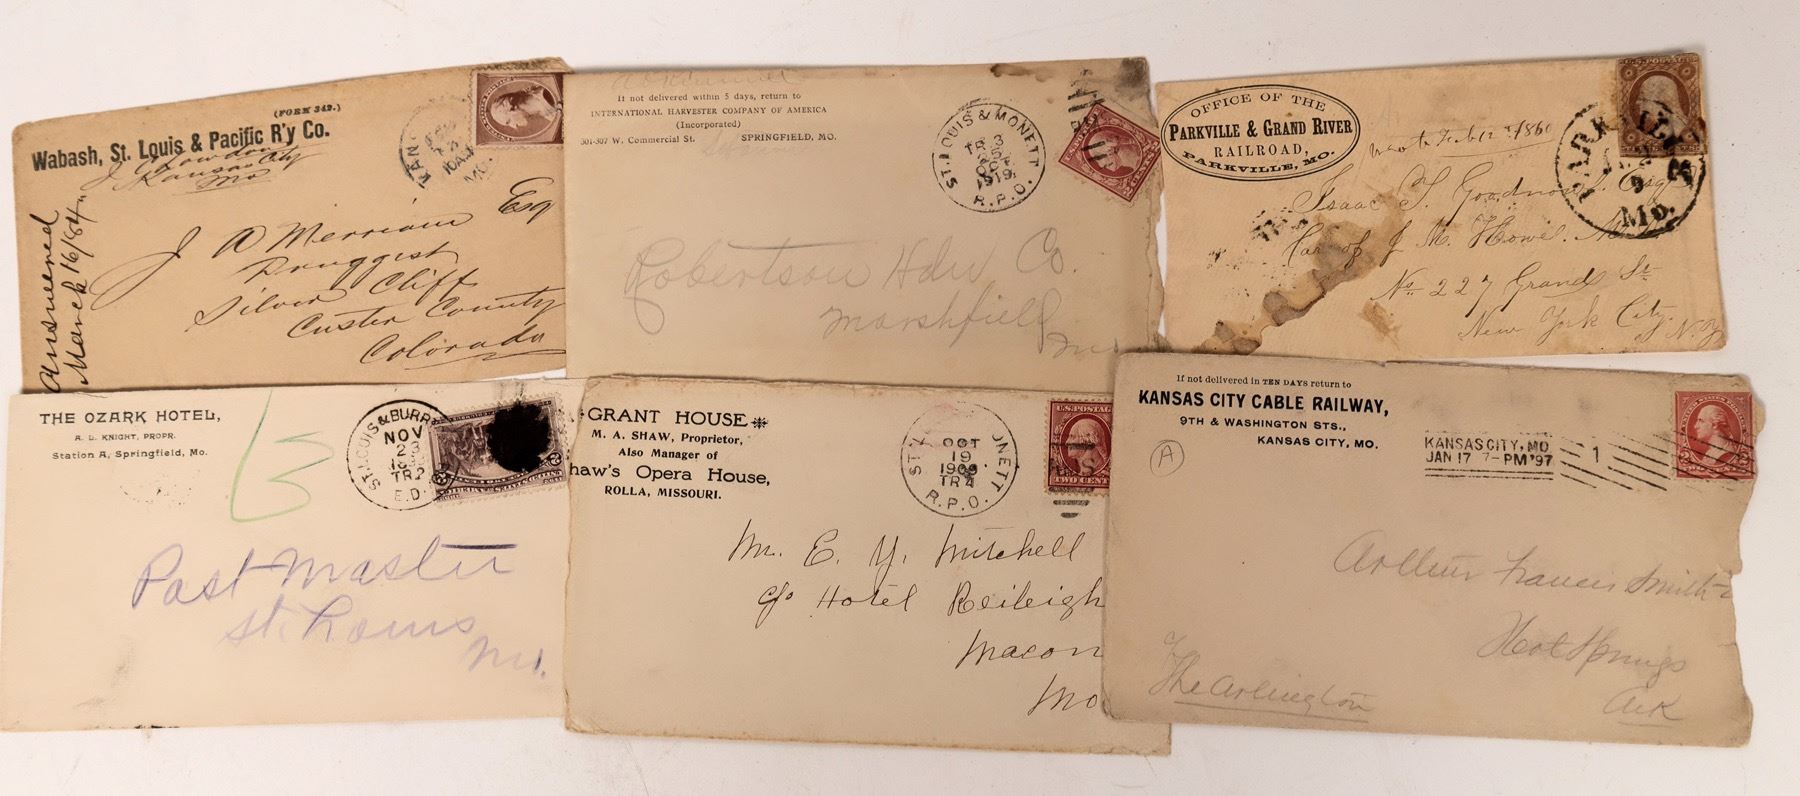 (FORM 342.)
Wabash, St. Louis & Pacific R'y Co.
Kansas City
Mo
Answered
March 16/84
J A Merriam Esq
Druggist
Silver Cliff
Custer County
Colorado
MO.
If not delivered within 5 days, return to
INTERNATIONAL HARVESTER COMPANY OF AMERICA
(Incorporated)
301-307 W. Commercial St. SPRINGFIELD, MO.
ST. LOUIS & MONETT
TR 3
OCT
1919
R.P.O.
Robertson Hdw Co.
Marshfield
Mo
OFFICE OF THE
PARKVILLE & GRAND RIVER
RAILROAD,
PARKVILLE, MO.
Feb 12th 1860
U.S. POSTAGE
9
Mo.
Isaac T. Goodnow Esq
Car of J. M. Howel.
No. 227 Grand St
New York City
N.Y
THE OZARK HOTEL,
A. L. KNIGHT, PROPR.
Station A, Springfield, Mo.
ST. LOUIS & BURR
NOV
TR 2
E.D.
Post Master
St. Louis
Mo.
GRANT HOUSE
M. A. SHAW, Proprietor,
Also Manager of
haw's Opera House,
ROLLA, MISSOURI.
ONETT
OCT
19
1909
TR 4
R.P.O.
U.S. POSTAG
TWO CENT
Mr. E. Y. Mitchell
c/o Hotel Reileigh
Macon
Mo
If not delivered in TEN DAYS return to
KANSAS CITY CABLE RAILWAY,
9TH & WASHINGTON STS.,
KANSAS CITY, MO.
A
KANSAS CITY, MO
JAN 17 7-PM '97
1
Arthur Francis Smith
Hot Springs
Ark
The Arlington